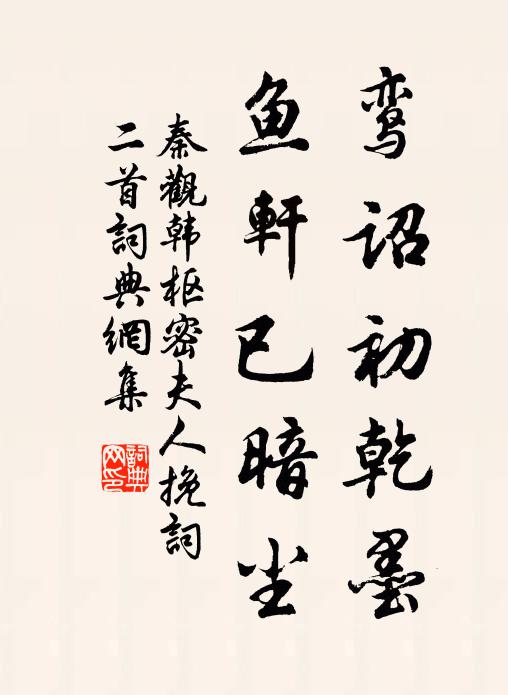 鸾诏初乾墨
鱼軒已暗尘
秦觀韩枢密夫人挽詞
二首詞典網集
詞典
网印